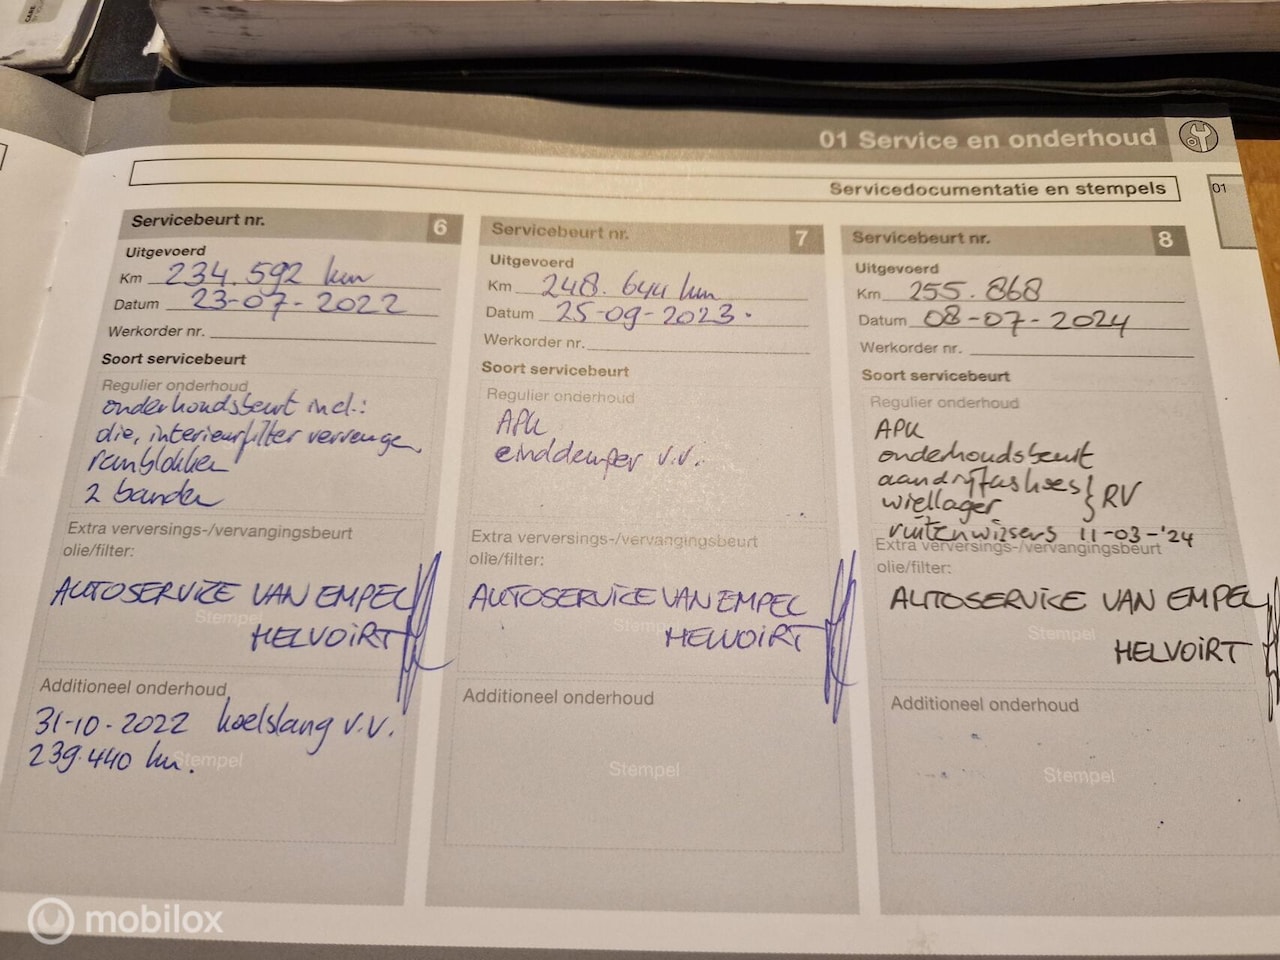 01 Service en onderhoud
01
Servicedocumentatie en stempels
Servicebeurt nr. 6
Uitgevoerd
Km 234.592 km
Datum 23-07-2022
Werkorder nr.
Soort servicebeurt
Regulier onderhoud
onderhoudsbeurt incl.:
olie, interieurfilter vervangen
remblokken
2 banden
Extra verversings-/vervangingsbeurt
olie/filter:
AUTOSERVICE VAN EMPEL
Stempel
HELVOIRT
Additioneel onderhoud
31-10-2022 koelslang v.v.
239.440 km.
Stempel
Servicebeurt nr. 7
Uitgevoerd
Km 248.644 km
Datum 25-09-2023.
Werkorder nr.
Soort servicebeurt
Regulier onderhoud
APK
einddemper v.v.
Extra verversings-/vervangingsbeurt
olie/filter:
AUTOSERVICE VAN EMPEL
Stempel
HELVOIRT
Additioneel onderhoud
Stempel
Servicebeurt nr. 8
Uitgevoerd
Km 255.868
Datum 08-07-2024
Werkorder nr.
Soort servicebeurt
Regulier onderhoud
APK
onderhoudsbeurt
aandrijfashoes } RV
wiellager
ruitenwissers 11-03-'24
Extra verversings-/vervangingsbeurt
olie/filter:
AUTOSERVICE VAN EMPEL
Stempel
HELVOIRT
Additioneel onderhoud
Stempel
mobilox